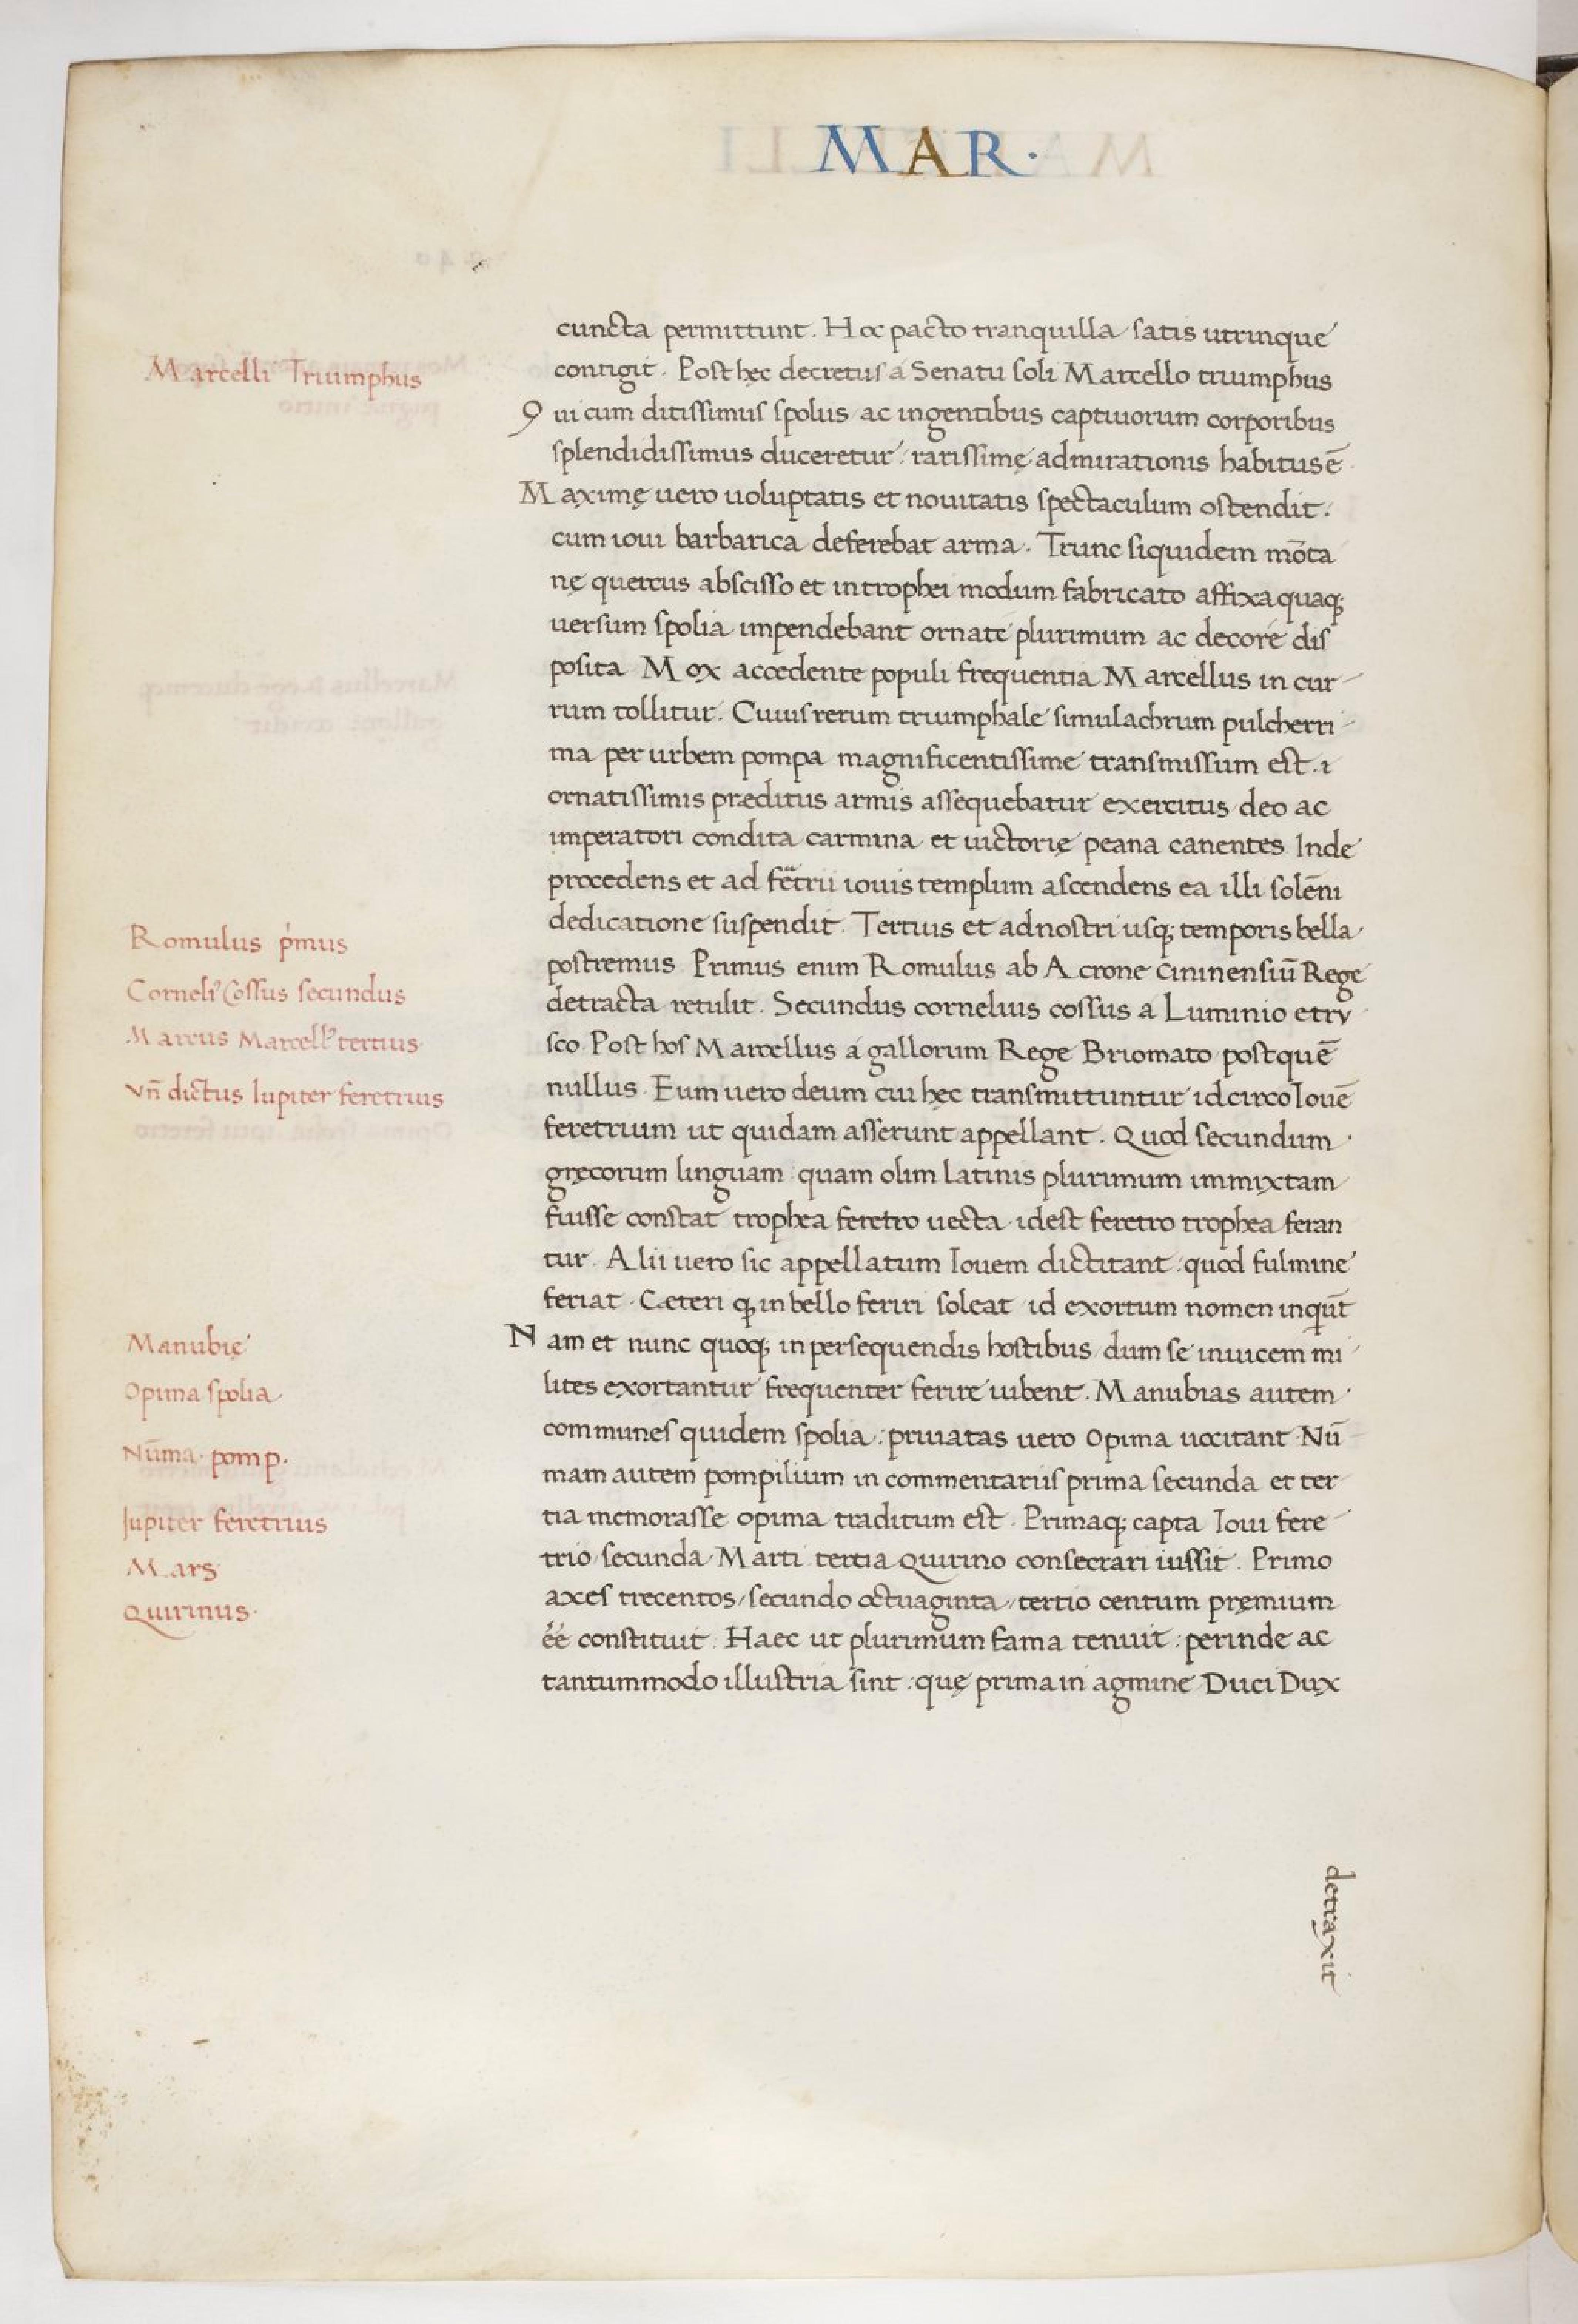 MAR·
cuncta permittunt. Hoc pacto tranquilla satis utrinque
Marcelli Triumphus
contigit. Post hęc decretus a Senatu soli Marcello triumphus
Qui cum ditissimus spoliis ac ingentibus captiuorum corporibus
splendidissimus duceretur: rarissimę admirationis habitus ē
Maximę uero uoluptatis et nouitatis spectaculum ostendit.
cum ioui barbarica deferebat arma. Trunc siquidem mōta
nę quercus abscisso et in trophei modum fabricato affixa quaq;
uersum spolia impendebant ornate plurimum ac decore dis
posita Mox accedente populi frequentia Marcellus in cur-
rum tollitur. Cuius rerum triumphale simulachrum pulcherri-
ma per urbem pompa magnificentissime transmissum est. &
ornatissimis præditus armis assequebatur exercitus deo ac
imperatori condita carmina et uictorię peana canentes Inde
procedens et ad fētrii iouis templum ascendens ea illi solēni
dedicatione suspendit. Tertius et ad nostri usq; temporis bella
Romulus p̍mus
postremus Primus enim Romulus ab Acrone Cininensiū Rege
Corneli᾿ Cossus secundus
detracta retulit. Secundus cornelius cossus a Luminio etrv
Marcus Marcell᾿ tertius
sco Post hos Marcellus a gallorum Rege Briomato post quē
Vn̄ dictus Iupiter feretrius
nullus. Eum uero deum cui hęc transmittuntur id circo Iouē
feretrium ut quidam asserunt appellant. Quod secundum
gręcorum linguam quam olim latinis plurimum immixtam
fuisse constat trophea feretro uecta idest feretro trophea feran
tur. Alii uero sic appellatum Iouem dictitant: quod fulmine
feriat. Cæteri q; in bello feriri soleat id exortum nomen inquīt
Manubię
Nam et nunc quoq; in persequendis hostibus dum se inuicem mi
Opima spolia
lites exortantur frequenter ferire iubent. Manubias autem
communes quidem spolia: priuatas uero Opima uocitant Nū
Nūma pomp.
mam autem pompilium in commentariis prima secunda et ter-
tia memorasse opima traditum est. Primaq; capta Ioui fere-
Jupiter feretrius
trio secunda Marti tertia Quirino consecrari iussit. Primo
Mars
axes trecentos/ secundo octuaginta/ tertio centum pręmium
Quirinus.
éé constituit. Haec ut plurimum fama tenuit: perinde ac
tantummodo illustria sint: quę prima in agmine Duci Dux
detraxit